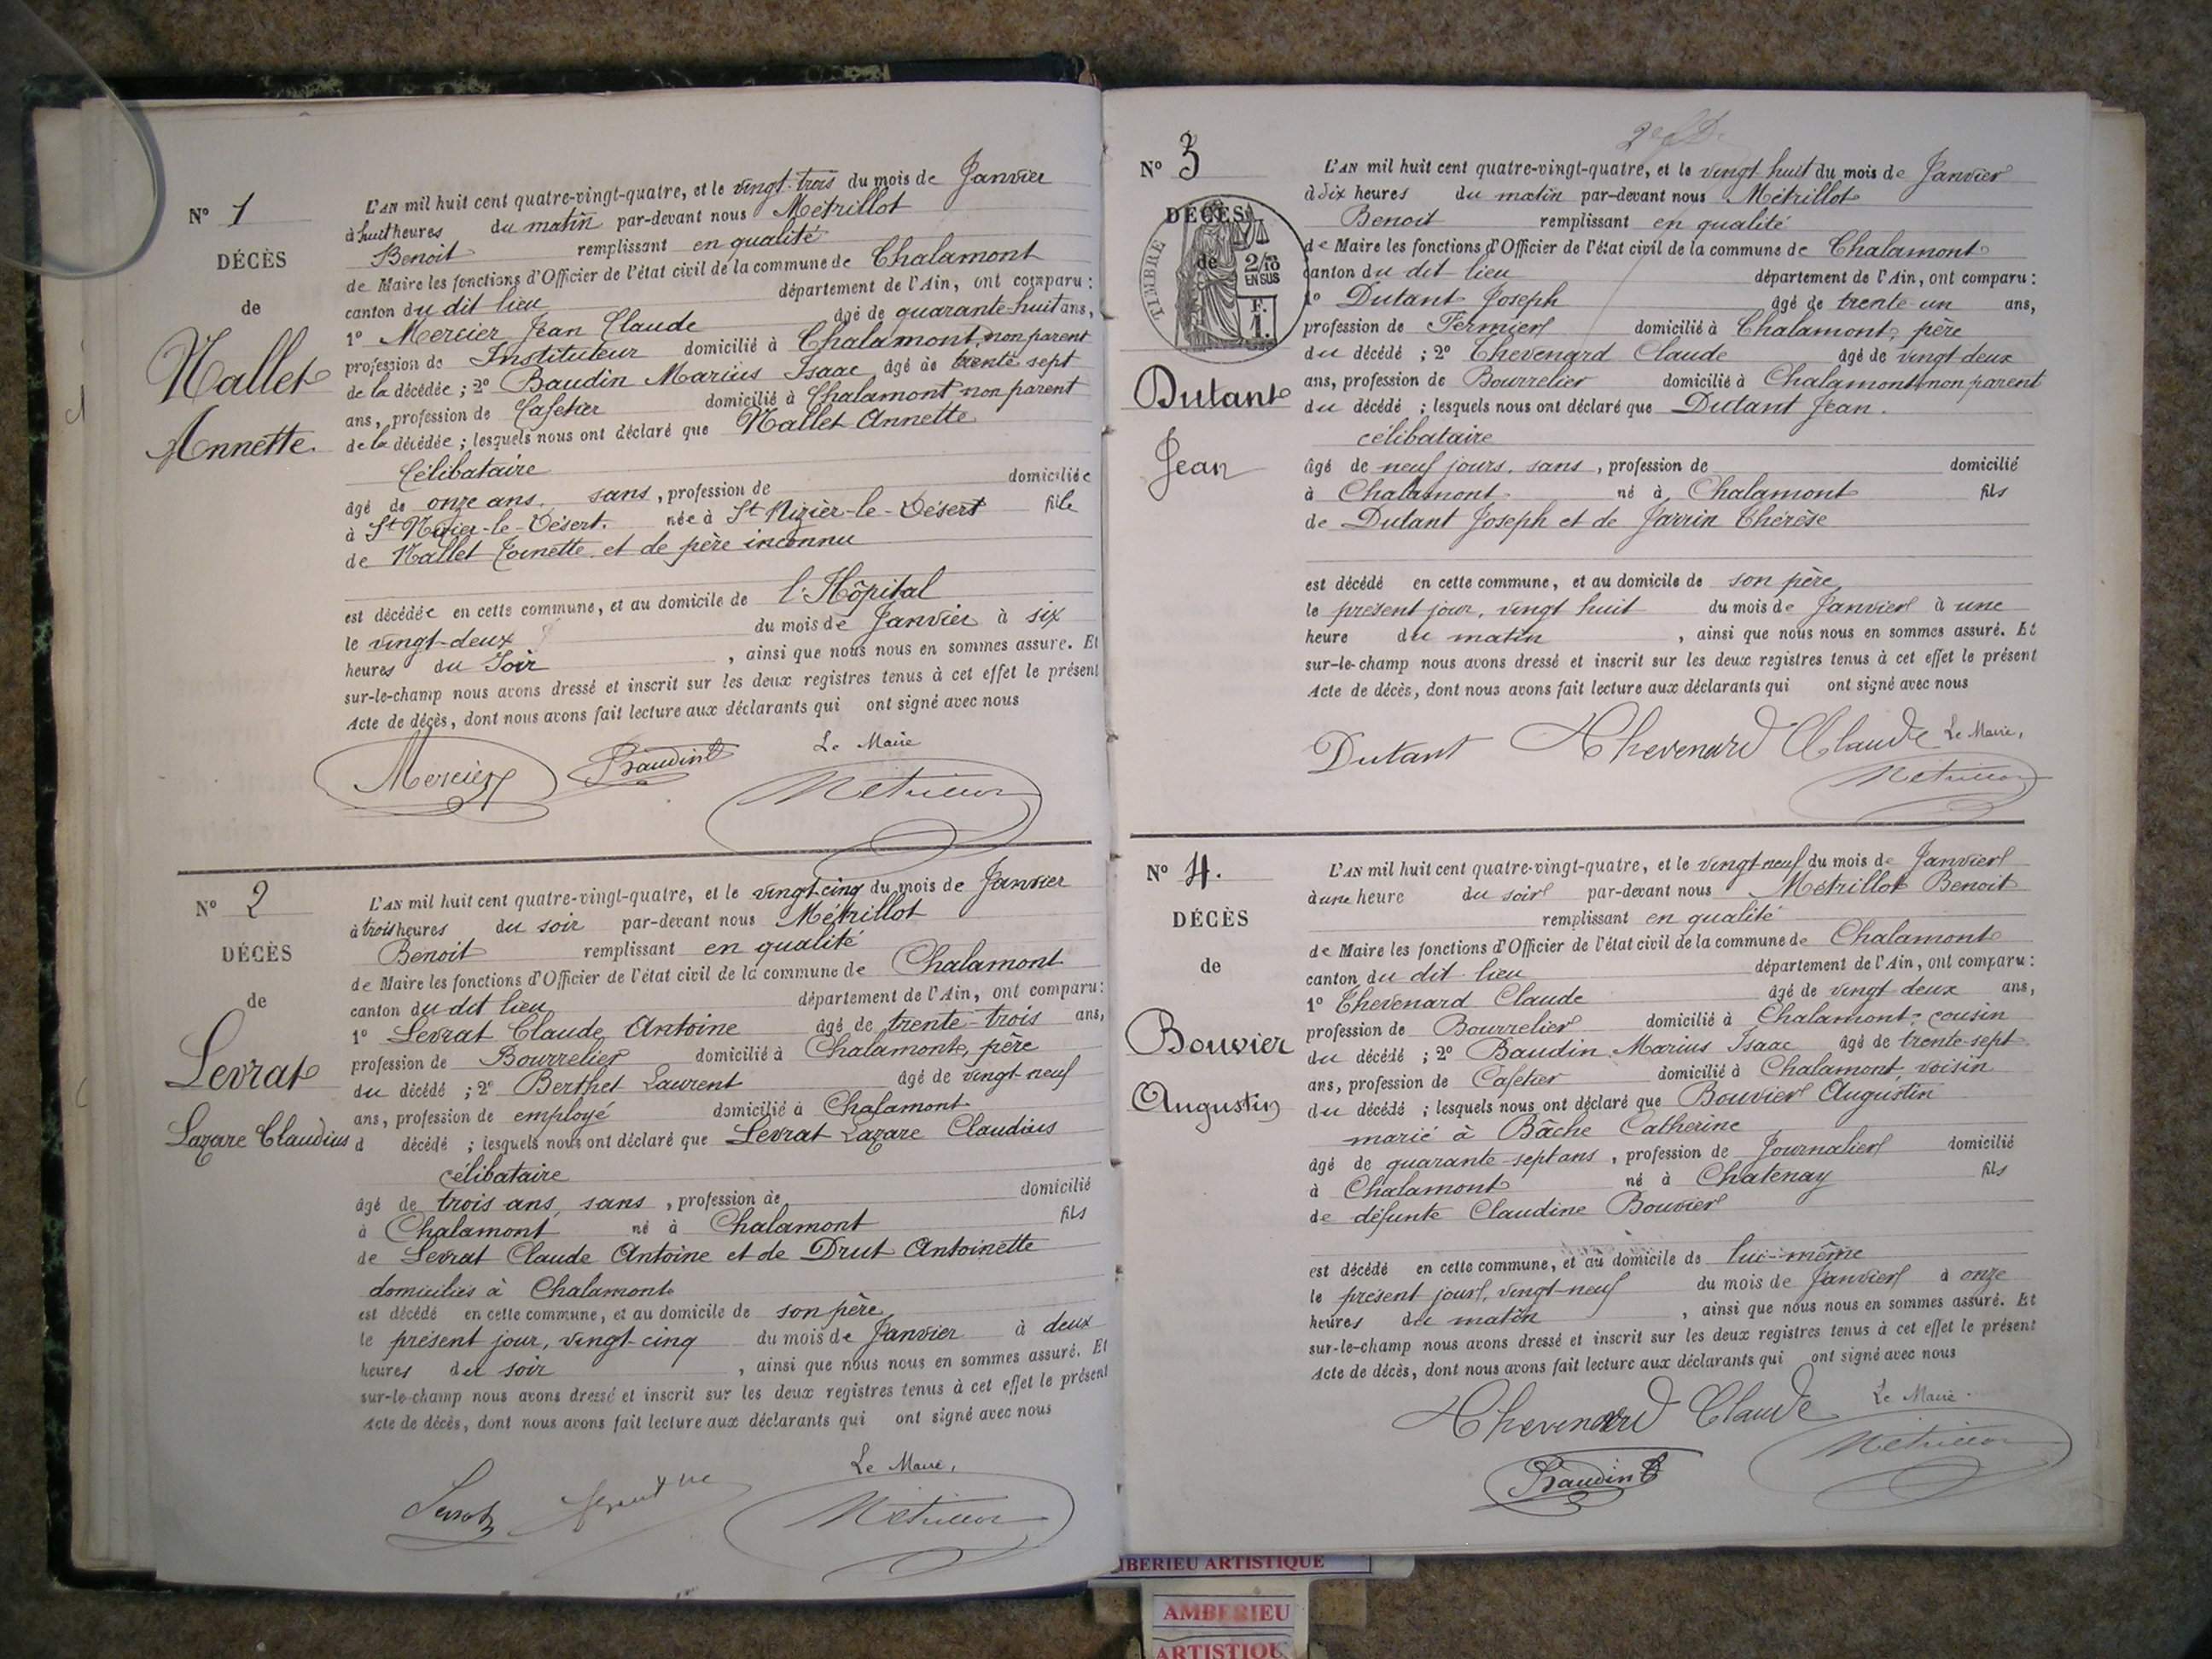 N° 1
DÉCÈS
de
Nallet
Annette.
L'AN mil huit cent quatre-vingt-quatre, et le vingt-trois du mois de Janvier
à huit heures du matin par-devant nous Métrillot
Benoit remplissant en qualité
de Maire les fonctions d'Officier de l'état civil de la commune de Chalamont
canton du dit lieu département de l'Ain, ont comparu :
1° Mercier Jean Claude âgé de quarante-huit ans,
profession de Instituteur domicilié à Chalamont, non parent
de la décédée ; 2° Baudin Marius Isaac âgé de trente sept
ans, profession de Cafetier domicilié à Chalamont non parent
de la décédée ; lesquels nous ont déclaré que Nallet Annette
Célibataire
âgé de onze ans, sans, profession de domiciliée
à St Nizier-le-Désert. née à St Nizier-le-Désert fille
de Nallet Toinette et de père inconnu
est décédée en cette commune, et au domicile de l'Hôpital
le vingt-deux du mois de Janvier à six
heures du Soir, ainsi que nous nous en sommes assuré. Et
sur-le-champ nous avons dressé et inscrit sur les deux registres tenus à cet effet le présent
Acte de décès, dont nous avons fait lecture aux déclarants qui ont signé avec nous
Le Maire
Mercier Baudin Métrillot
N° 2
DÉCÈS
de
Levrat
Lazare Claudius
L'AN mil huit cent quatre-vingt-quatre, et le vingt cinq du mois de Janvier
à trois heures du soir par-devant nous Métrillot
Benoit remplissant en qualité
de Maire les fonctions d'Officier de l'état civil de la commune de Chalamont
canton du dit lieu département de l'Ain, ont comparu :
1° Levrat Claude Antoine âgé de trente-trois ans,
profession de Bourrelier domicilié à Chalamont, père
du décédé ; 2° Berthet Laurent âgé de vingt-neuf
ans, profession de employé domicilié à Chalamont
d décédé ; lesquels nous ont déclaré que Levrat Lazare Claudius
célibataire
âgé de trois ans, sans, profession de domicilié
à Chalamont né à Chalamont fils
de Levrat Claude Antoine et de Drut Antoinette
domiciliés à Chalamont
est décédé en cette commune, et au domicile de son père
le présent jour, vingt-cinq du mois de Janvier à deux
heures du soir, ainsi que nous nous en sommes assuré. Et
sur-le-champ nous avons dressé et inscrit sur les deux registres tenus à cet effet le présent
Acte de décès, dont nous avons fait lecture aux déclarants qui ont signé avec nous
Le Maire,
Levrat Métrillot
N° 3
DÉCÈS
de
TIMBRE
2/10
EN SUS
F.
1.
Dutant
Jean
L'AN mil huit cent quatre-vingt-quatre, et le vingt-huit du mois de Janvier
à dix heures du matin par-devant nous Métrillot
Benoit remplissant en qualité
de Maire les fonctions d'Officier de l'état civil de la commune de Chalamont
canton du dit lieu département de l'Ain, ont comparu :
1° Dutant Joseph âgé de trente-un ans,
profession de Fermier domicilié à Chalamont, père
du décédé ; 2° Thevenard Claude âgé de vingt deux
ans, profession de Bourrelier domicilié à Chalamont, non parent
du décédé ; lesquels nous ont déclaré que Dutant Jean.
célibataire
âgé de neuf jours, sans, profession de domicilié
à Chalamont né à Chalamont fils
de Dutant Joseph et de Jarrin Thérèse
est décédé en cette commune, et au domicile de son père
le présent jour, vingt huit du mois de Janvier à une
heure du matin, ainsi que nous nous en sommes assuré. Et
sur-le-champ nous avons dressé et inscrit sur les deux registres tenus à cet effet le présent
Acte de décès, dont nous avons fait lecture aux déclarants qui ont signé avec nous
Dutant Thevenard Claude Le Maire,
Métrillot
N° 4.
DÉCÈS
de
Bouvier
Augustin
L'AN mil huit cent quatre-vingt-quatre, et le vingt-neuf du mois de Janvier
à une heure du soir par-devant nous Métrillot Benoit
remplissant en qualité
de Maire les fonctions d'Officier de l'état civil de la commune de Chalamont
canton du dit lieu département de l'Ain, ont comparu :
1° Thevenard Claude âgé de vingt-deux ans,
profession de Bourrelier domicilié à Chalamont, cousin
du décédé ; 2° Baudin Marius Isaac âgé de trente-sept
ans, profession de Cafetier domicilié à Chalamont, voisin
du décédé ; lesquels nous ont déclaré que Bouvier Augustin
marié à Bâche Catherine
âgé de quarante-sept ans, profession de Journalier domicilié
à Chalamont né à Chatenay fils
de défunte Claudine Bouvier
est décédé en cette commune, et au domicile de lui-même
le présent jour, vingt-neuf du mois de Janvier à onze
heures du matin, ainsi que nous nous en sommes assuré. Et
sur-le-champ nous avons dressé et inscrit sur les deux registres tenus à cet effet le présent
Acte de décès, dont nous avons fait lecture aux déclarants qui ont signé avec nous
Thevenard Claude Le Maire.
Baudin Métrillot
AMBERIEU ARTISTIQUE
AMBERIEU
ARTISTIQU